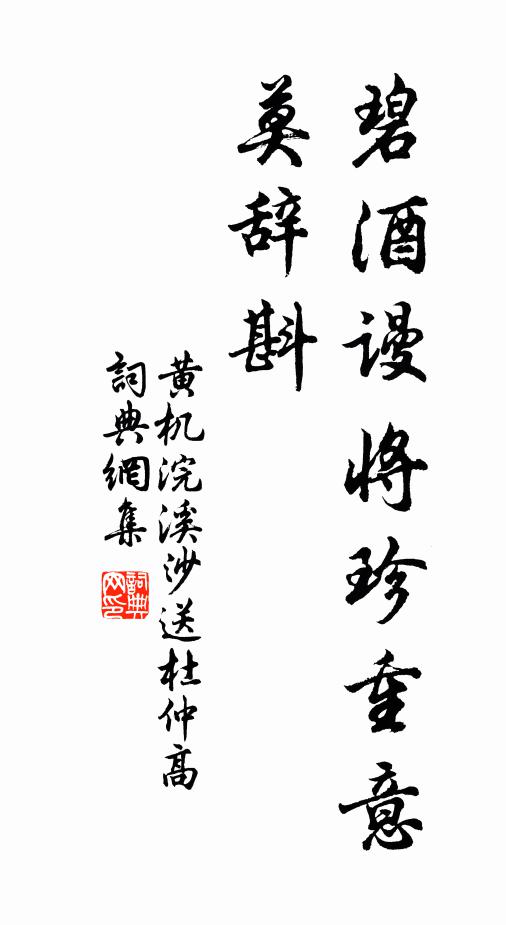 碧酒谩将珍重意
莫辞斟
黄机浣溪沙送杜仲高
詞典網集
詞典网印